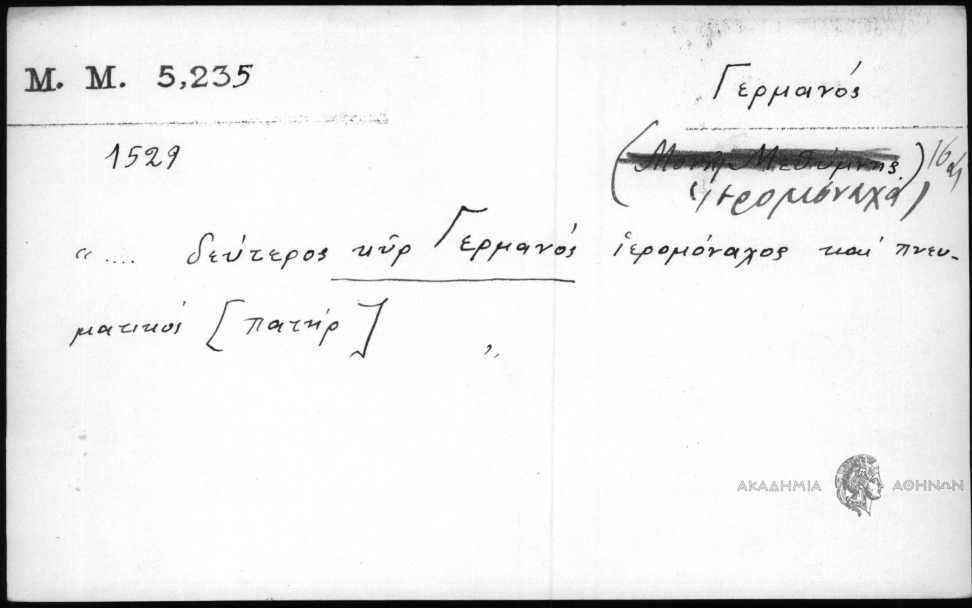 Μ. Μ. 5,235
Γερμανός
1529
(Μονὴ Μεθύμνης.) 16 αἰ
ἱερομόναχος)
“.... δεύτερος κῦρ Γερμανός ἱερομόναχος καί πνευ-
ματικός [πατήρ] ”
ΑΚΑΔΗΜΙΑ ΑΘΗΝΩΝ